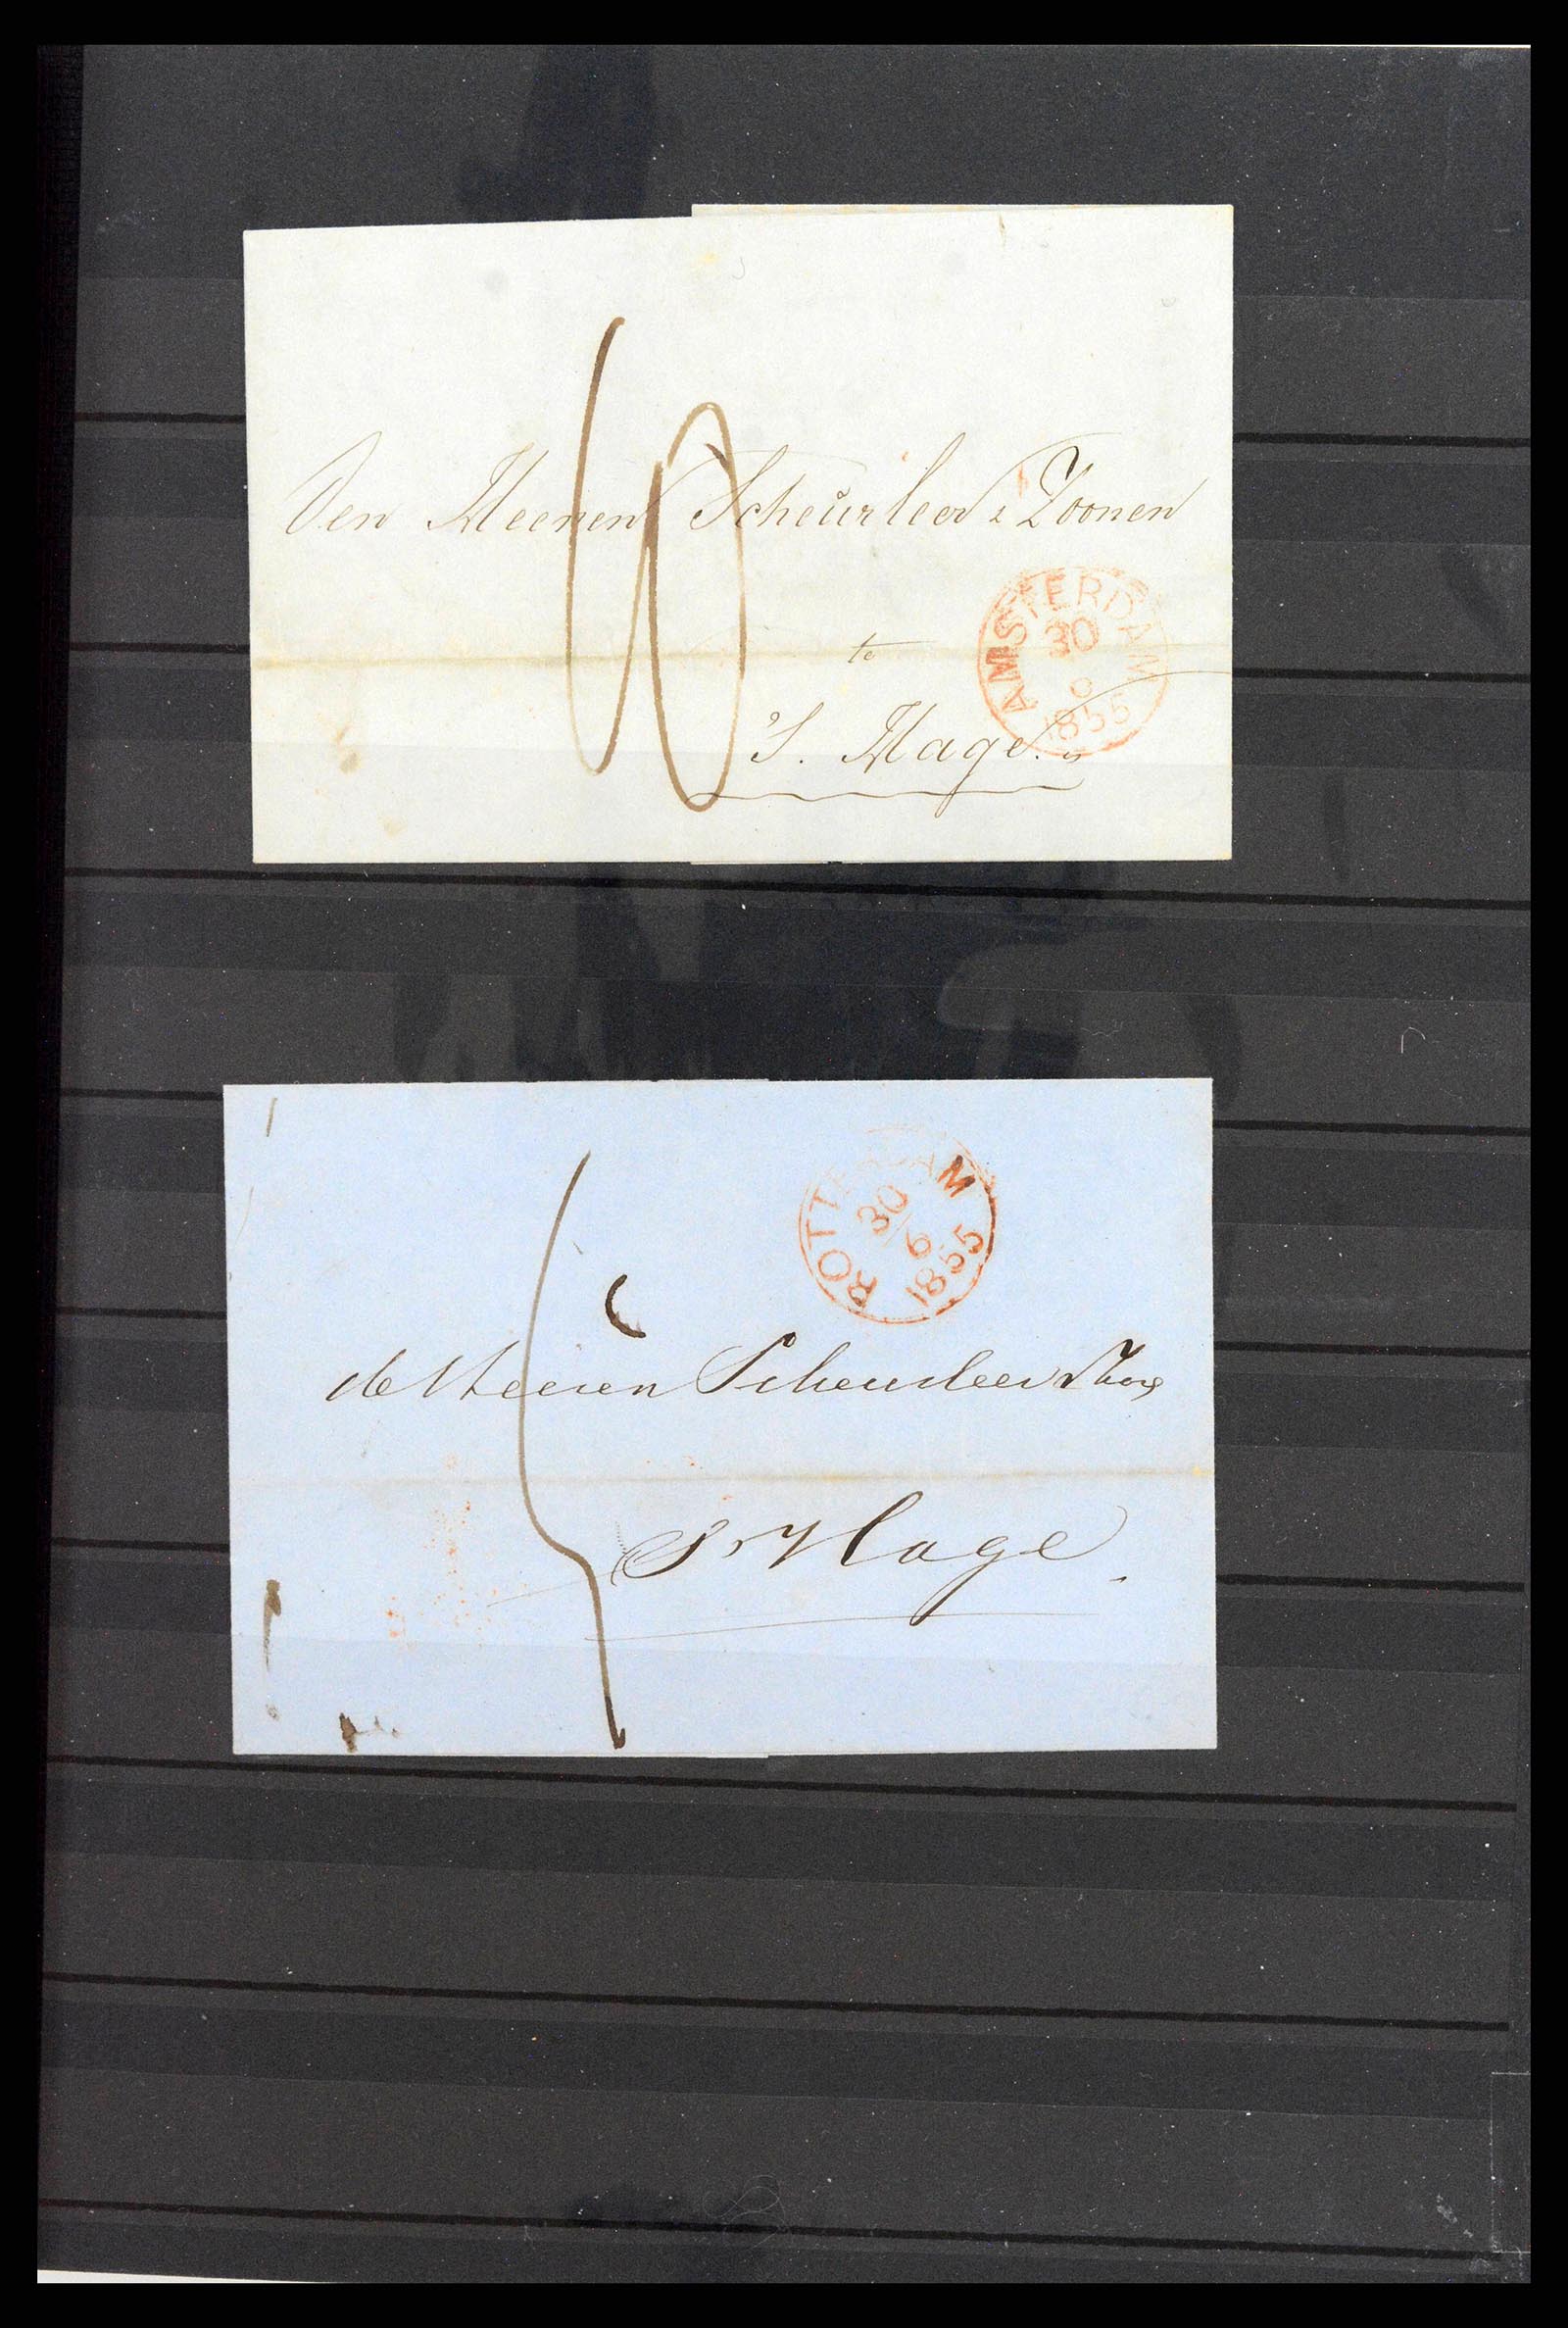 10
Den Heeren Scheurleer & Zoonen
te
'S. Hage.
AMSTERDAM
30
6
1855
5
ROTTERDAM
30/6
1855
de Heeren Scheurleer &
S Hage